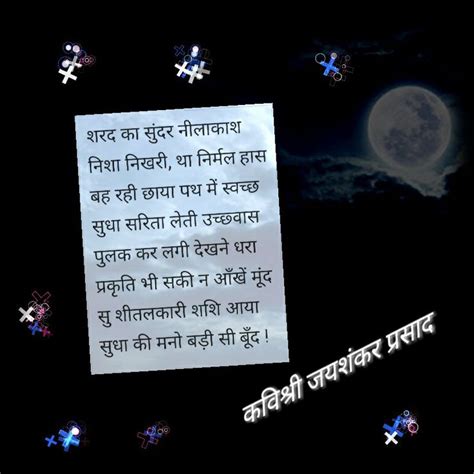 शरद का सुंदर नीलाकाश
निशा निखरी, था निर्मल हास
बह रही छाया पथ में स्वच्छ
सुधा सरिता लेती उच्छ्वास
पुलक कर लगी देखने धरा
प्रकृति भी सकी न आँखें मूंद
सु शीतलकारी शशि आया
सुधा की मनो बड़ी सी बूँद !
कविश्री जयशंकर प्रसाद